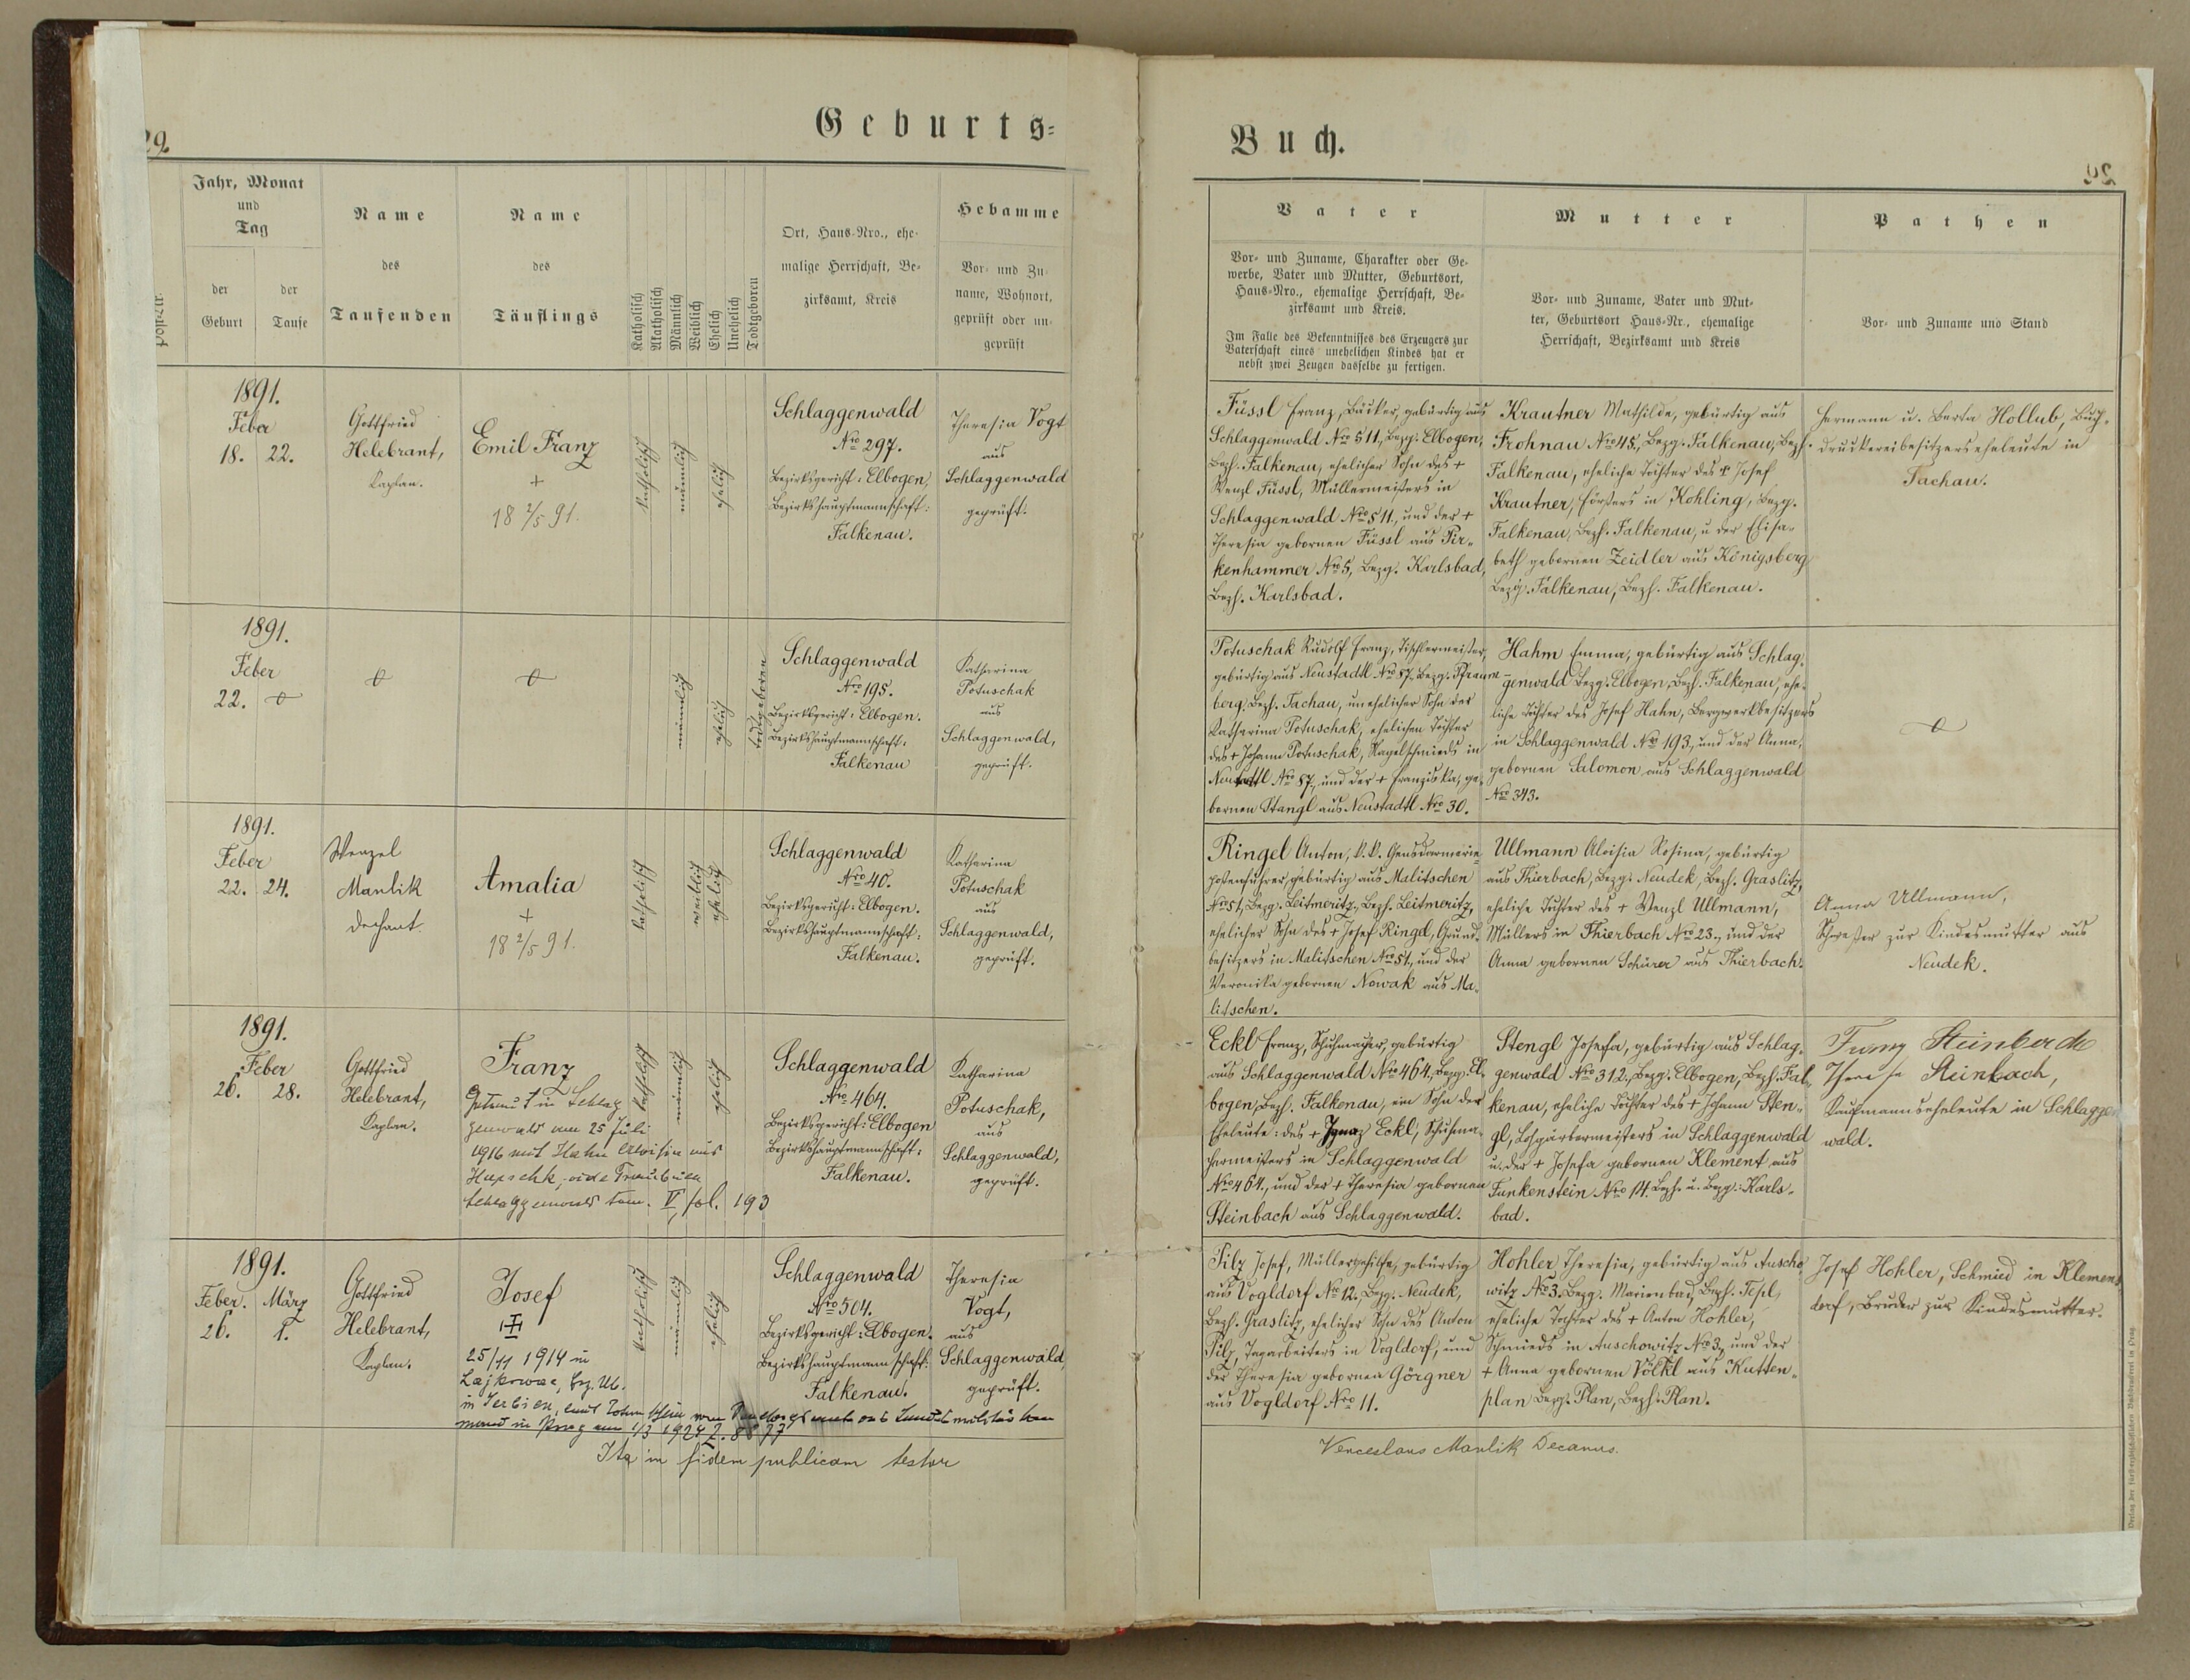 29.
Geburts-
Jahr, Monat
und
Tag
der
Geburt
der
Taufe
Name
des
Taufenden
Name
des
Täuflings
Katholisch
Akatholisch
Männlich
Weiblich
Ehelich
Unehelich
Todtgeboren
Ort, Haus-Nro., ehe-
malige Herrschaft, Be-
zirksamt, Kreis
Hebamme
Vor- und Zu-
name, Wohnort,
geprüft oder un-
geprüft
1891.
Feber
18. 22.
Gottfried
Helebrant,
Kaplan.
Emil Franz
+
18 2/5 91.
katholisch
männlich
ehelich
Schlaggenwald
Nro 297.
Bezirksgericht: Elbogen,
Bezirkshauptmannschaft:
Falkenau.
Theresia Vogt
aus
Schlaggenwald
geprüft.
1891.
Feber
22.
männlich
ehelich
todtgeboren
Schlaggenwald
Nro 195.
Bezirksgericht: Elbogen.
Bezirkshauptmannschaft:
Falkenau
Katharina
Potuschak
aus
Schlaggenwald,
geprüft.
1891.
Feber
22. 24.
Wenzel
Manlik
Dechant
Amalia
+
18 2/5 91.
katholisch
weiblich
ehelich
Schlaggenwald
Nro 40.
Bezirksgericht: Elbogen.
Bezirkshauptmannschaft:
Falkenau.
Katharina
Potuschak
aus
Schlaggenwald,
geprüft.
1891.
Feber
26. 28.
Gottfried
Helebrant,
Kaplan.
Franz
Getraut in Schlag
genwald am 25 Juli
1916 mit Hahn Aloisia aus
vide Traubuch
Schlaggenwald tom. V, fol. 193
katholisch
männlich
ehelich
Schlaggenwald
Nro 464.
Bezirksgericht: Elbogen
Bezirkshauptmannschaft:
Falkenau.
Katharina
Potuschak,
aus
Schlaggenwald,
geprüft.
1891.
Feber. März
26. 1.
Gottfried
Helebrant,
Kaplan.
Josef
25/11 1914 in
in Serbien, laut Totenschein
in Prag am 1/3 1924
katholisch
männlich
ehelich
Schlaggenwald
Nro 504.
Bezirksgericht: Elbogen.
Bezirkshauptmannschaft:
Falkenau.
Theresia
Vogt,
aus
Schlaggenwald,
geprüft.
Ita in fidem publicam testor
Buch.
29
Vater
Vor- und Zuname, Charakter oder Ge-
werbe, Vater und Mutter, Geburtsort,
Haus-Nro., ehemalige Herrschaft, Be-
zirksamt und Kreis.
Im Falle des Bekenntnisses des Erzeugers zur
Vaterschaft eines unehelichen Kindes hat er
nebst zwei Zeugen dasselbe zu fertigen.
Mutter
Vor- und Zuname, Vater und Mut-
ter, Geburtsort Haus-Nr., ehemalige
Herrschaft, Bezirksamt und Kreis
Pathen
Vor- und Zuname und Stand
Füssl Franz, Bäcker, gebürtig aus
Schlaggenwald Nro 511., Bezg. Elbogen,
Bezh. Falkenau, ehelicher Sohn des +
Wenzl Füssl, Müllermeisters in
Schlaggenwald Nro 511., und der +
Theresia gebornen Füssl aus Pir-
kenhammer Nro 5, Bezg. Karlsbad,
Bezh. Karlsbad.
Krautner Mathilde, gebürtig aus
Frohnau Nro 45., Bezg. Falkenau, Bezh.
Falkenau, eheliche Tochter des + Josef
Krautner, Försters in Kohling, Bezg.
Falkenau, Bezh. Falkenau, u der Elisa-
beth gebornen Zeidler aus Königsberg
Bezg. Falkenau, Bezh. Falkenau.
Hermann u. Berta Hollub, Buch-
druckereibesitzerseheleute in
Tachau.
Potuschak Rudolf Franz, Tischlermeister,
gebürtig aus Neustadtl Nro 87. Bezg. Pfraum-
berg, Bezh. Tachau, unehelicher Sohn der
Katharina Potuschak, ehelichen Tochter
des + Johann Potuschak, Nagelschmieds in
Neustadtl Nro 87., und der + Franziska, ge-
bornen Stangl aus Neustadtl Nro 30.
Hahn Emma, gebürtig aus Schlag-
genwald Bezg. Elbogen, Bezh. Falkenau, ehe-
liche Tochter des Josef Hahn, Bergwerkbesitzers
in Schlaggenwald Nro 193., und der Anna,
gebornen Salomon aus Schlaggenwald
Nro 343.
Ringel Anton, k.k. Gensdarmerie-
postenführer, gebürtig aus Malitschen
Nro 51, Bezg. Leitmeritz, Bezh. Leitmeritz,
ehelicher Sohn des + Josef Ringel, Grund-
besitzers in Malitschen Nro 51., und der
Veronika gebornen Nowak aus Ma-
litschen.
Ullmann Aloisia Rosina, gebürtig
aus Thierbach, Bezg. Neudek, Bezh. Graslitz,
eheliche Tochter des + Wenzl Ullmann,
Müllers in Thierbach Nro 23., und der
Anna gebornen Schürer aus Thierbach.
Anna Ullmann,
Schwester zur Kindesmutter aus
Neudek.
Eckl Franz, Schuhmacher, gebürtig
aus Schlaggenwald Nro 464., Bezg. El-
bogen, Bezh. Falkenau, ein Sohn der
Eheleute: des + Ignaz Eckl, Schuhma-
chermeisters in Schlaggenwald
Nro 464., und der + Theresia gebornen
Steinbach aus Schlaggenwald.
Stengl Josefa, gebürtig aus Schlag-
genwald Nro 312., Bezg. Elbogen, Bezh. Fal-
kenau, eheliche Tochter des + Johann Sten-
gl, Lohgärbermeisters in Schlaggenwald
u. der + Josefa gebornen Klement aus
Funkenstein Nro 14. Bezh. u. Bezg.: Karls-
bad.
Franz Steinbach
Theresia Steinbach,
Kaufmannseheleute in Schlaggen
wald.
Pilz Josef, Müllergehilfe, gebürtig
aus Vogldorf Nro 12., Bezg. Neudek,
Bezh. Graslitz, ehelicher Sohn des Anton
Pilz, Tagarbeiters in Vogldorf, und
der Theresia gebornen Görgner
aus Vogldorf Nro 11.
Hohler Theresia, gebürtig aus Auscho-
witz No 3. Bezg. Marienbad, Bezh. Tepl,
eheliche Tochter des + Anton Hohler,
Schmieds in Auschowitz No 3., und der
+ Anna gebornen Vöckl aus Kutten-
plan Bezg. Plan, Bezh. Plan.
Josef Hohler, Schmied in Klemens
dorf, Bruder zur Kindesmutter.
Venceslaus Manlik Decanus.